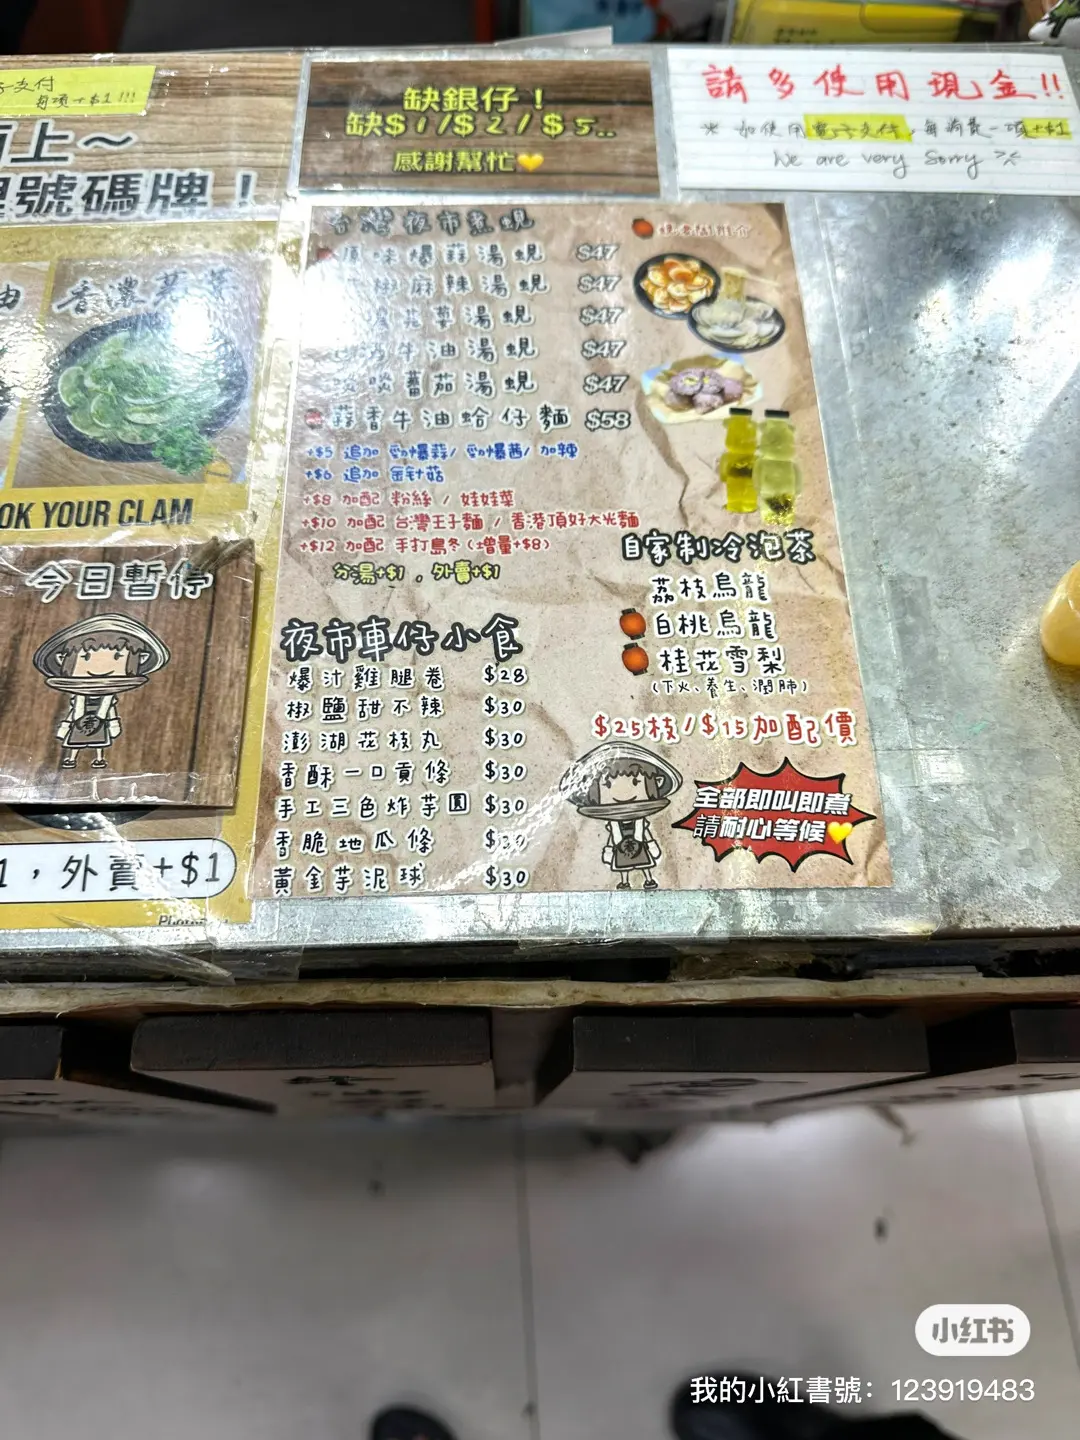 支付
每項+$1!!!
上～
號碼牌！
缺銀仔！
缺$1/$2/$5..
感謝幫忙
請多使用現金!!
※ 如使用電子支付，每消費一項+$1
We are very Sorry
香濃
OK YOUR CLAM
今日暫停
1，外賣+$1
台灣夜市煮蜆
原味爆蒜湯蜆 $47
椒麻辣湯蜆 $47
湯蜆 $47
牛油湯蜆 $47
蕃茄湯蜆 $47
蒜香牛油蛤仔麵 $58
+$5 追加 勁爆蒜/勁爆茜/加辣
+$6 追加 金針菇
+$8 加配 粉絲 / 娃娃菜
+$10 加配 台灣王子麵 / 香港頂好大光麵
+$12 加配 手打烏冬(增量+$8)
分湯+$1，外賣+$1
自家制冷泡茶
荔枝烏龍
白桃烏龍
桂花雪梨
(下火、養生、潤肺)
$25枝/$15加配價
夜市車仔小食
爆汁雞腿卷 $28
椒鹽甜不辣 $30
澎湖花枝丸 $30
香酥一口貢條 $30
手工三色炸芋圓 $30
香脆地瓜條 $30
黃金芋泥球 $30
全部即叫即煮
請耐心等候
小红书
我的小紅書號：123919483